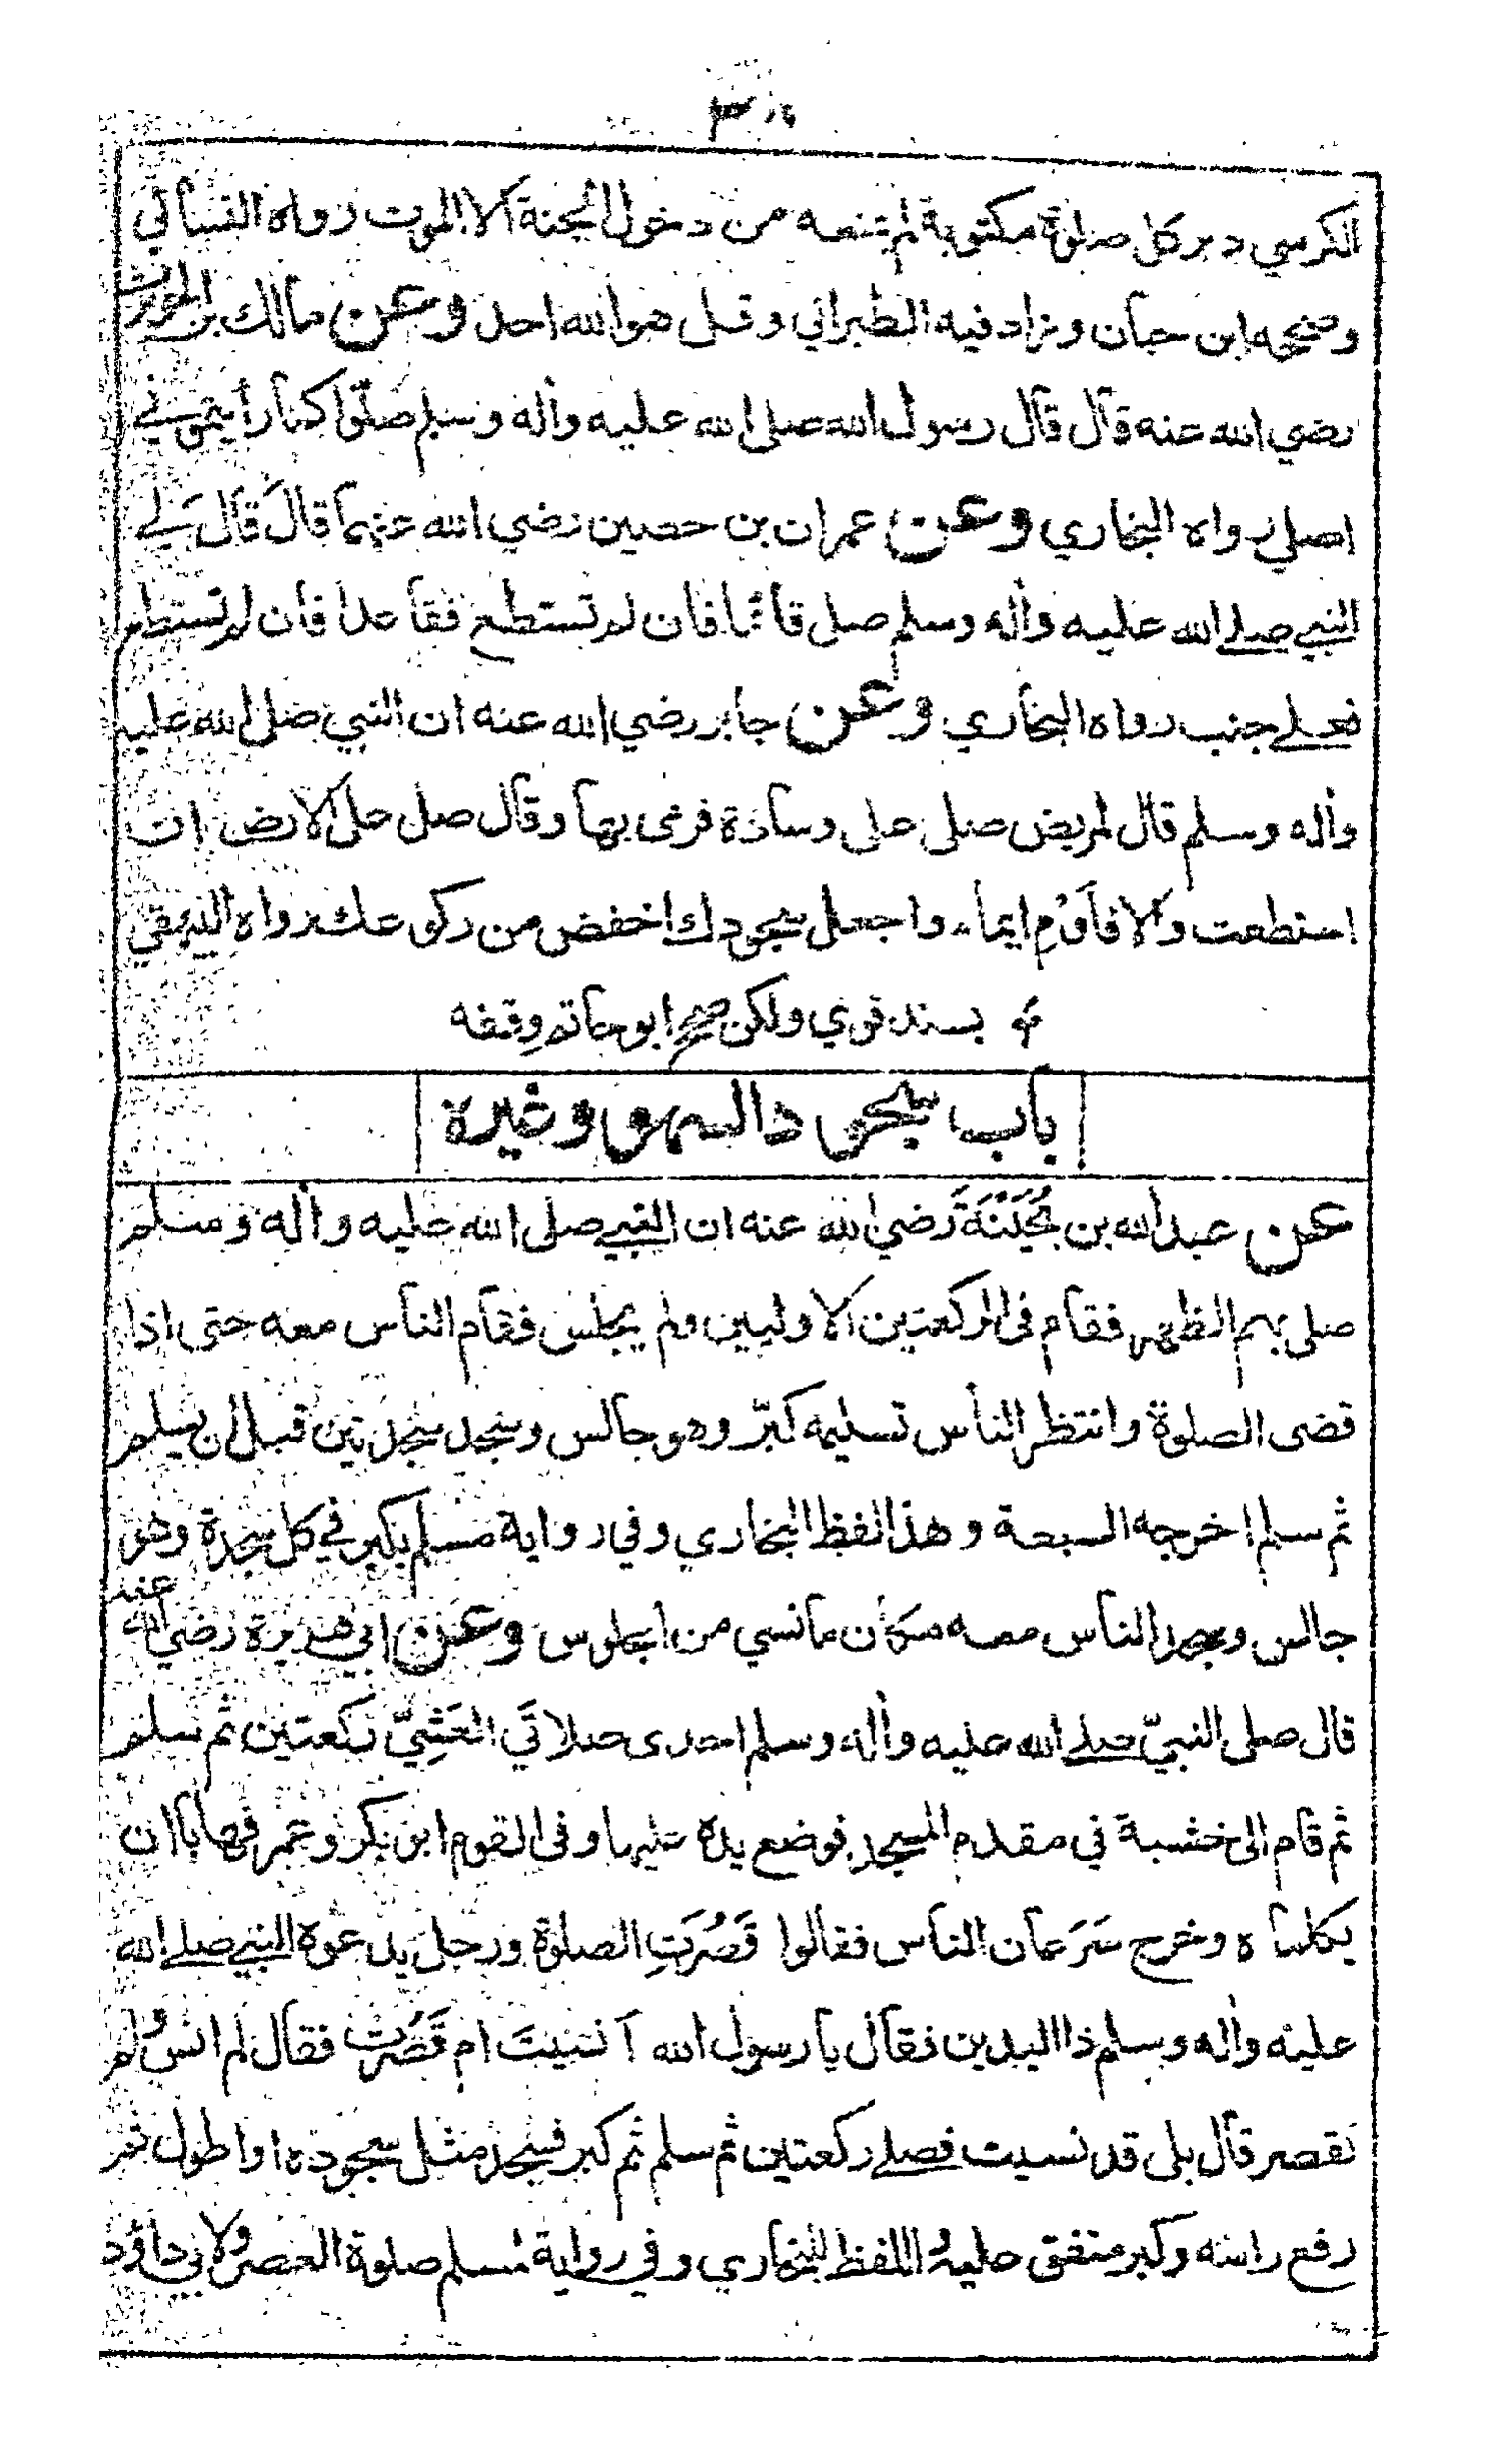 الكرسي دبر كل صلوة مكتوبة لم يمنعه من دخول الجنة الا الموت رواه النسائي
وصححه ابن حبان وزاد فيه الطبراني وقل هو الله احد وعن مالك بن الحويرث
رضي الله عنه قال قال رسول الله صلى الله عليه وأله وسلم صلّوا كما رأيتموني
اصلي رواه البخاري وعن عمران بن حصين رضي الله عنهما قال قال لي
النبي صلى الله عليه وأله وسلم صل قائما فان لم تستطع فقاعدا فان لم تستطع
فعلى جنب رواه البخاري وعن جابر رضي الله عنه ان النبي صلى الله عليه
وأله وسلم قال لمريض صلى على وسادة فرمى بها وقال صل على الارض ان
استطعت والا فأوم ايماء واجعل سجودك اخفض من ركوعك رواه البيهقي
بسند قوي ولكن صحح ابو حاتم وقفه
باب سجود السهو وغيره
عن عبد الله بن بُحَيْنَةَ رضي الله عنه ان النبي صلى الله عليه وأله وسلم
صلى بهم الظهر فقام في الركعتين الاوليين ولم يجلس فقام الناس معه حتى اذا
قضى الصلوة وانتظر الناس تسليمه كبّر وهو جالس وسجد سجدتين قبل أن يسلم
ثم سلم اخرجه السبعة وهذا لفظ البخاري وفي رواية مسلم يكبر في كل سجدة وهو
جالس وسجد الناس معه مكان ما نسي من الجلوس وعن ابي هريرة رضي الله عنه
قال صلى النبيّ صلى الله عليه وأله وسلم احدى صلاتَي العَشِيّ ركعتين ثم سلم
ثم قام الى خشبة في مقدم المسجد فوضع يده عليها وفي القوم ابو بكر وعمر فهابا ان
يكلماه وخرج سَرَعان الناس فقالوا قَصُرَتِ الصلوة ورجل يدعوه النبي صلى الله
عليه وأله وسلم ذا اليدين فقال يا رسول الله أنسيتَ ام قَصُرت فقال لم انس ولم
تقصر قال بلى قد نسيت فصلى ركعتين ثم سلم ثم كبر فسجد مثل سجوده او اطول ثم
رفع راسه وكبر متفق عليه واللفظ للبخاري وفي رواية لمسلم صلوة العصر ولابي داؤد